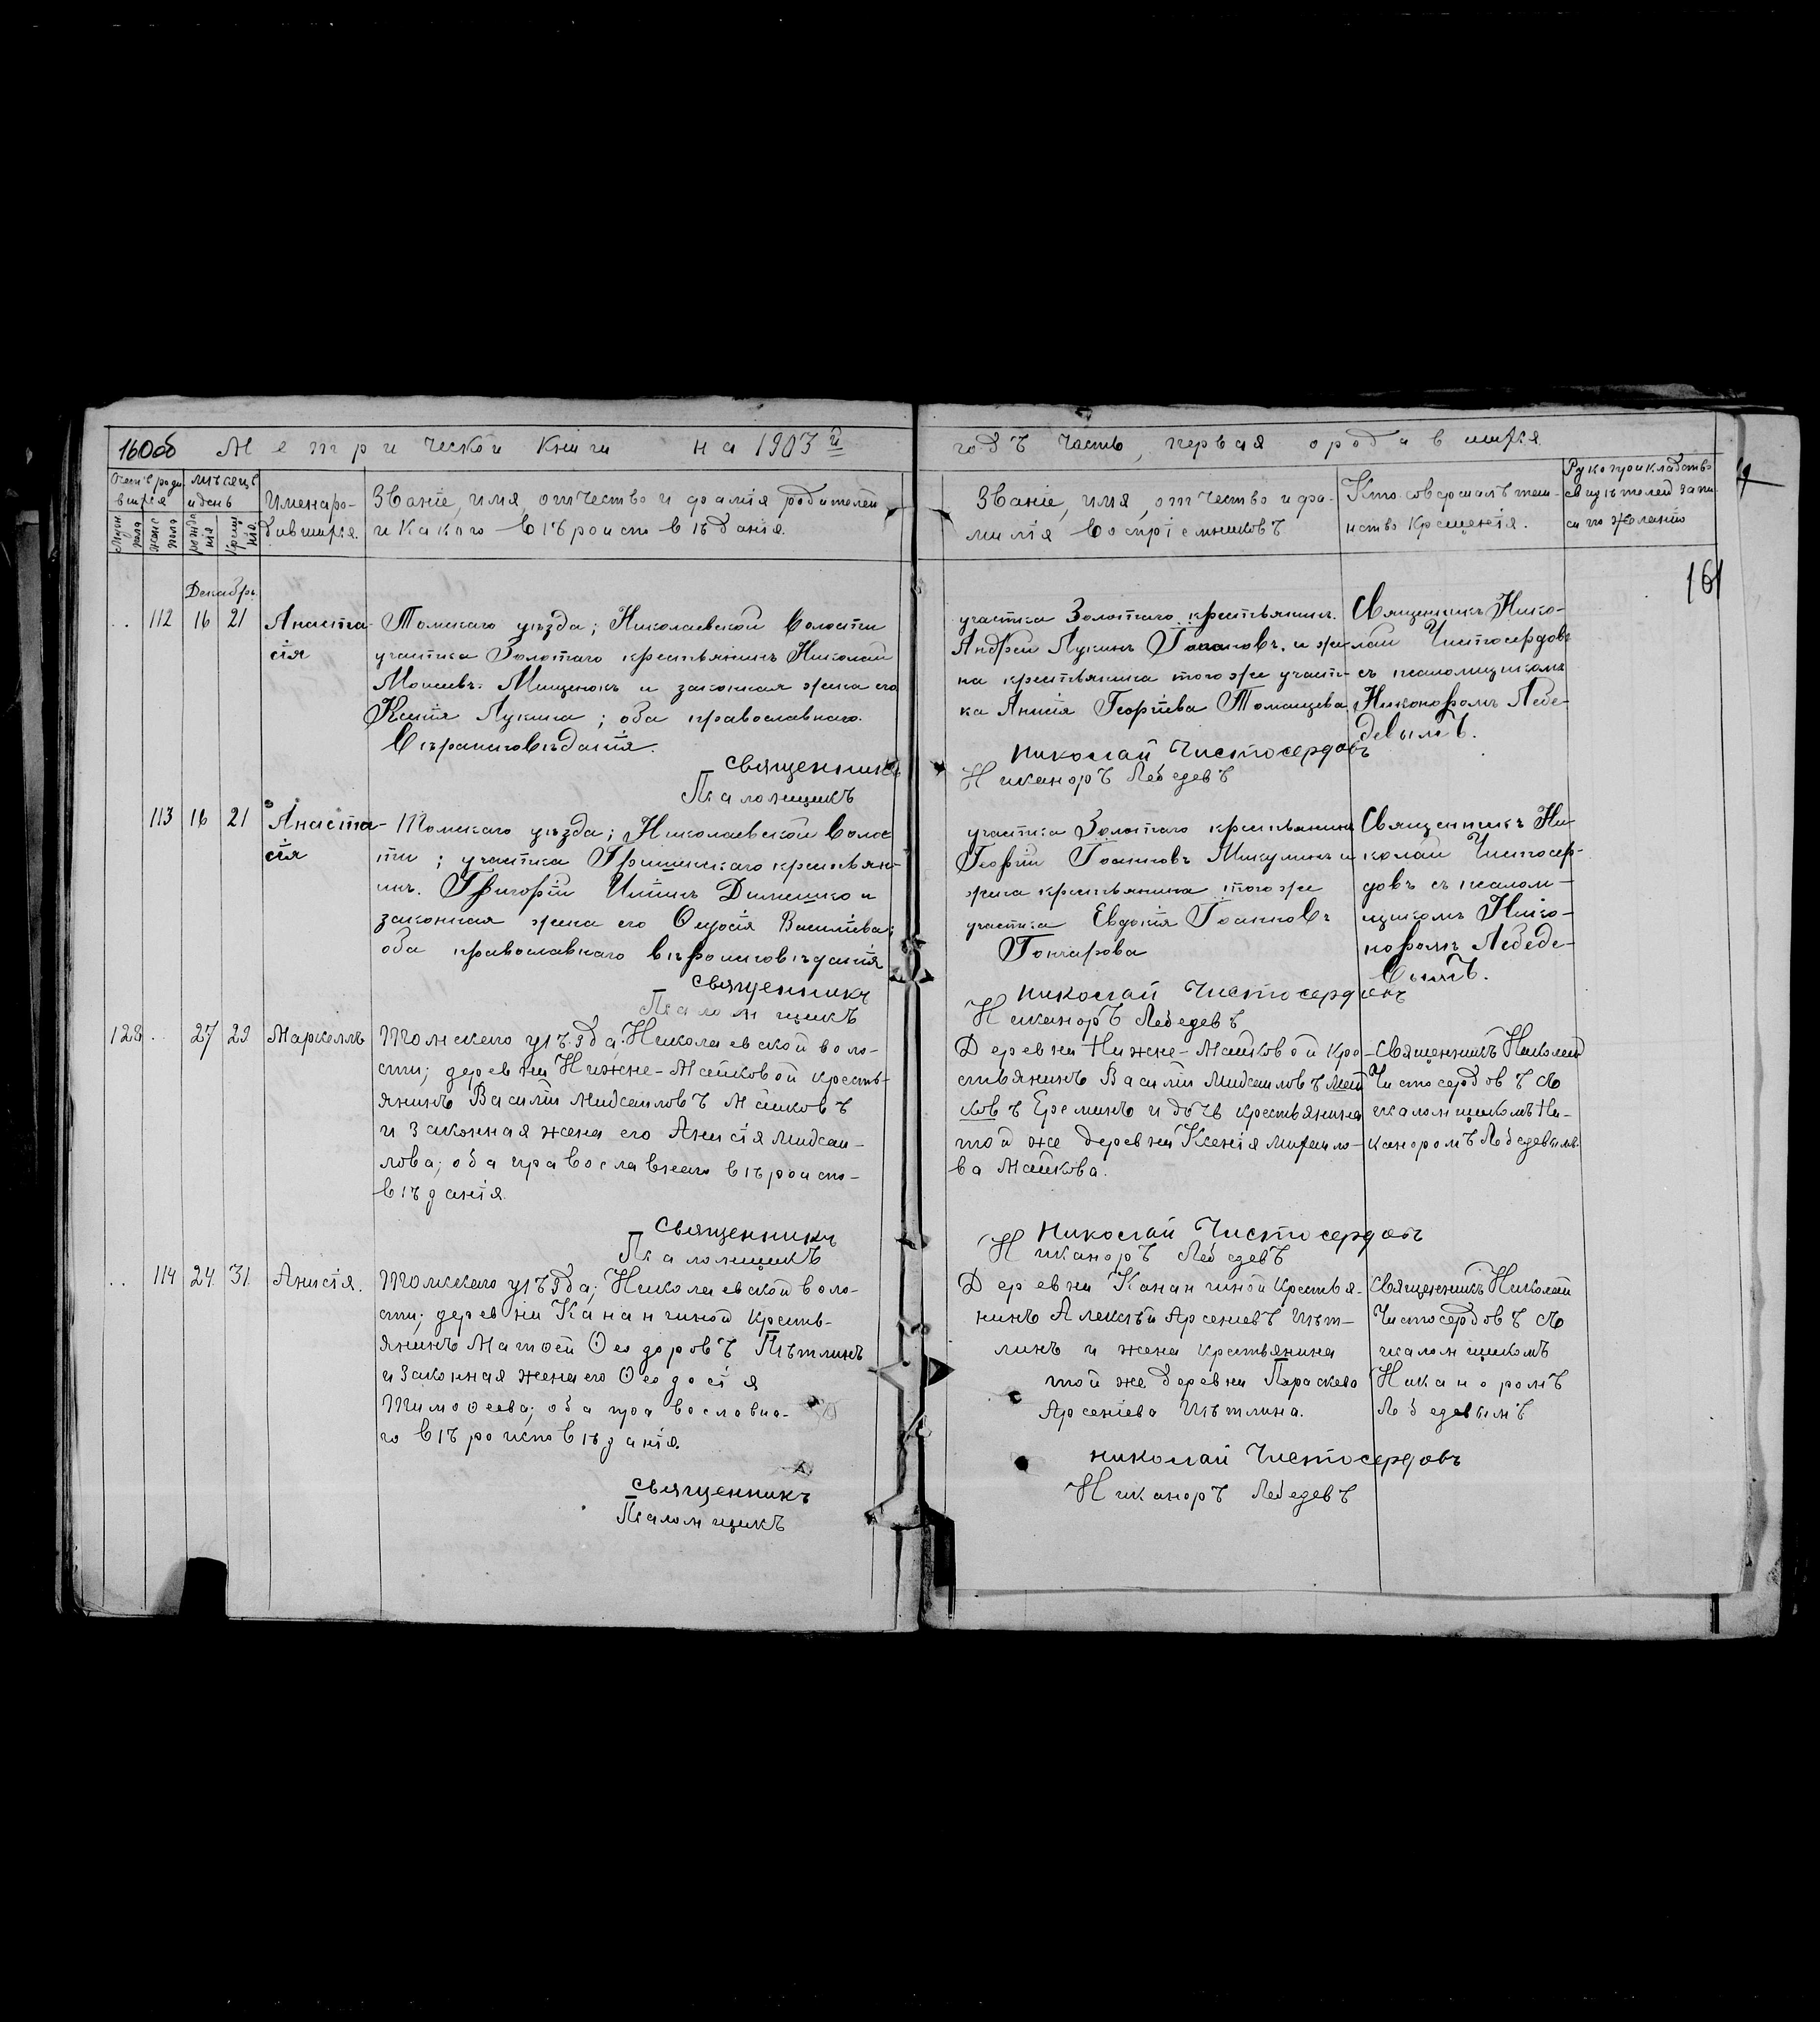 160об Метрической книги на 1903й
годъ часть, первая о родившихся
Счетъ родившихся
мѣсяцъ и день
Имена родившихся.
Званіе, имя, отчество и фамилія родителей
и какого вѣроисповѣданія.
Званіе, имя, отчество и фа-
милія воспріемниковъ
Кто совершалъ таин-
ство крещенія.
Рукоприкладство
свидѣтелей запи-
си по желанію
161
Декабрь
112 16 21 Анаста-
сія
Томскаго уѣзда; Николаевской волости
участка Золотаго крестьянинъ Николай
Моисеевъ Мищенокъ и законная жена его
Ксенія Лукина; оба православнаго
вѣроисповѣданія.
участка Золотаго крестьянинъ
Андрей Лукинъ и же-
на крестьянина того же участ-
ка Анисія Георгіева
Священникъ Нико-
лай Чистосердовъ
съ псаломщикомъ
Никаноромъ Лебе-
девымъ.
Священникъ Николай Чистосердовъ
Псаломщикъ Никаноръ Лебедевъ
113 16 21 Анаста-
сія
Томскаго уѣзда; Николаевской волос
ти; участка крестьяни-
нъ Григорій Димешко и
законная жена его Васильева;
оба православнаго вѣроисповѣданія
участка Золотаго крестьянинъ
Георгій Іоанновъ Микулинъ и
жена крестьянина того же
участка Евдокія Іоаннов
Гончарова
Священникъ Ни
колай Чистосер-
довъ съ псалом-
щикомъ Нико-
норомъ Лебеде-
вымъ.
Священникъ Николай Чистосердовъ
Псаломщикъ Никаноръ Лебедевъ
128 .. 27 29 Маркеллъ
Томскаго уѣзда; Николаевской воло-
сти; деревни Нижне-Майковой кресть-
янинъ Василій Михаиловъ Майковъ
и законная жена его Анисія Михаи-
лова; оба православнаго вѣроиспо-
вѣданія.
Деревни Нижне-Майковой кре-
стьянинъ Василій Михаиловъ Май
ковъ Ереминъ и дочь крестьянина
той же деревни Ксенія Михаило-
ва Майкова.
Священникъ Николай
Чистосердовъ съ
псаломщикомъ Ни-
каноромъ Лебедевымъ.
Священникъ Николай Чистосердовъ
Псаломщикъ Никаноръ Лебедевъ
.. 114 24 31 Анисія.
Томскаго уѣзда; Николаевской воло-
сти; деревни Канангиной кресть-
янинъ Матѳей Ѳеодоровъ Пѣтлинъ
и законная жена его Ѳеодосія
Тимоѳеева; оба православна-
го вѣроисповѣданія.
Деревни Канангиной крестья-
нинъ Алексѣй Арсеніевъ Пѣт-
линъ и жена крестьянина
той же деревни Параскева
Арсеніева Пѣтлина.
Священникъ Николай
Чистосердовъ съ
псаломщикомъ
Никаноромъ
Лебедевымъ
Священникъ Николай Чистосердовъ
Псаломщикъ Никаноръ Лебедевъ